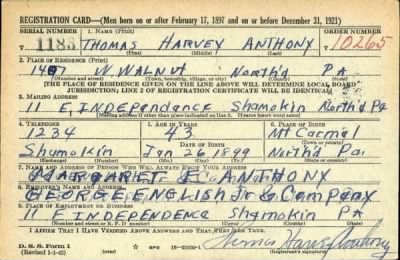 REGISTRATION CARD—(Men born on or after February 17, 1897 and on or before December 31, 1921)
SERIAL NUMBER 1. NAME (Print) ORDER NUMBER
T 1183 THOMAS HARVEY ANTHONY 10265
(First) (Middle) (Last)
2. PLACE OF RESIDENCE (Print)
1407 W WALNUT North'd PA
(Number and street) (Town, township, village, or city) (County) (State)
[THE PLACE OF RESIDENCE GIVEN ON THE LINE ABOVE WILL DETERMINE LOCAL BOARD
JURISDICTION; LINE 2 OF REGISTRATION CERTIFICATE WILL BE IDENTICAL]
3. MAILING ADDRESS
11 E INDEPendance Shamokin North'd Pa
[Mailing address if other than place indicated on line 2. If same insert word same]
4. TELEPHONE 5. AGE IN YEARS 6. PLACE OF BIRTH
1234 43 Mt Carmal
DATE OF BIRTH (Town or county)
Shumolkin Jan 26 1899 North'd Pa.
(Exchange) (Number) (Mo.) (Day) (Yr.) (State or country)
7. NAME AND ADDRESS OF PERSON WHO WILL ALWAYS KNOW YOUR ADDRESS
MARGARET E. ANTHONY
8. EMPLOYER'S NAME AND ADDRESS
GEORGE ENGLISH Jr & Company
9. PLACE OF EMPLOYMENT OR BUSINESS
11 E INDEPENDENCE Shamokin PA
(Number and street or R. F. D. number) (Town) (County) (State)
I AFFIRM THAT I HAVE VERIFIED ABOVE ANSWERS AND THAT THEY ARE TRUE.
D. S. S. Form 1
(Revised 1-1-42) GPO Thomas Harvey Anthony
(Registrant's signature)